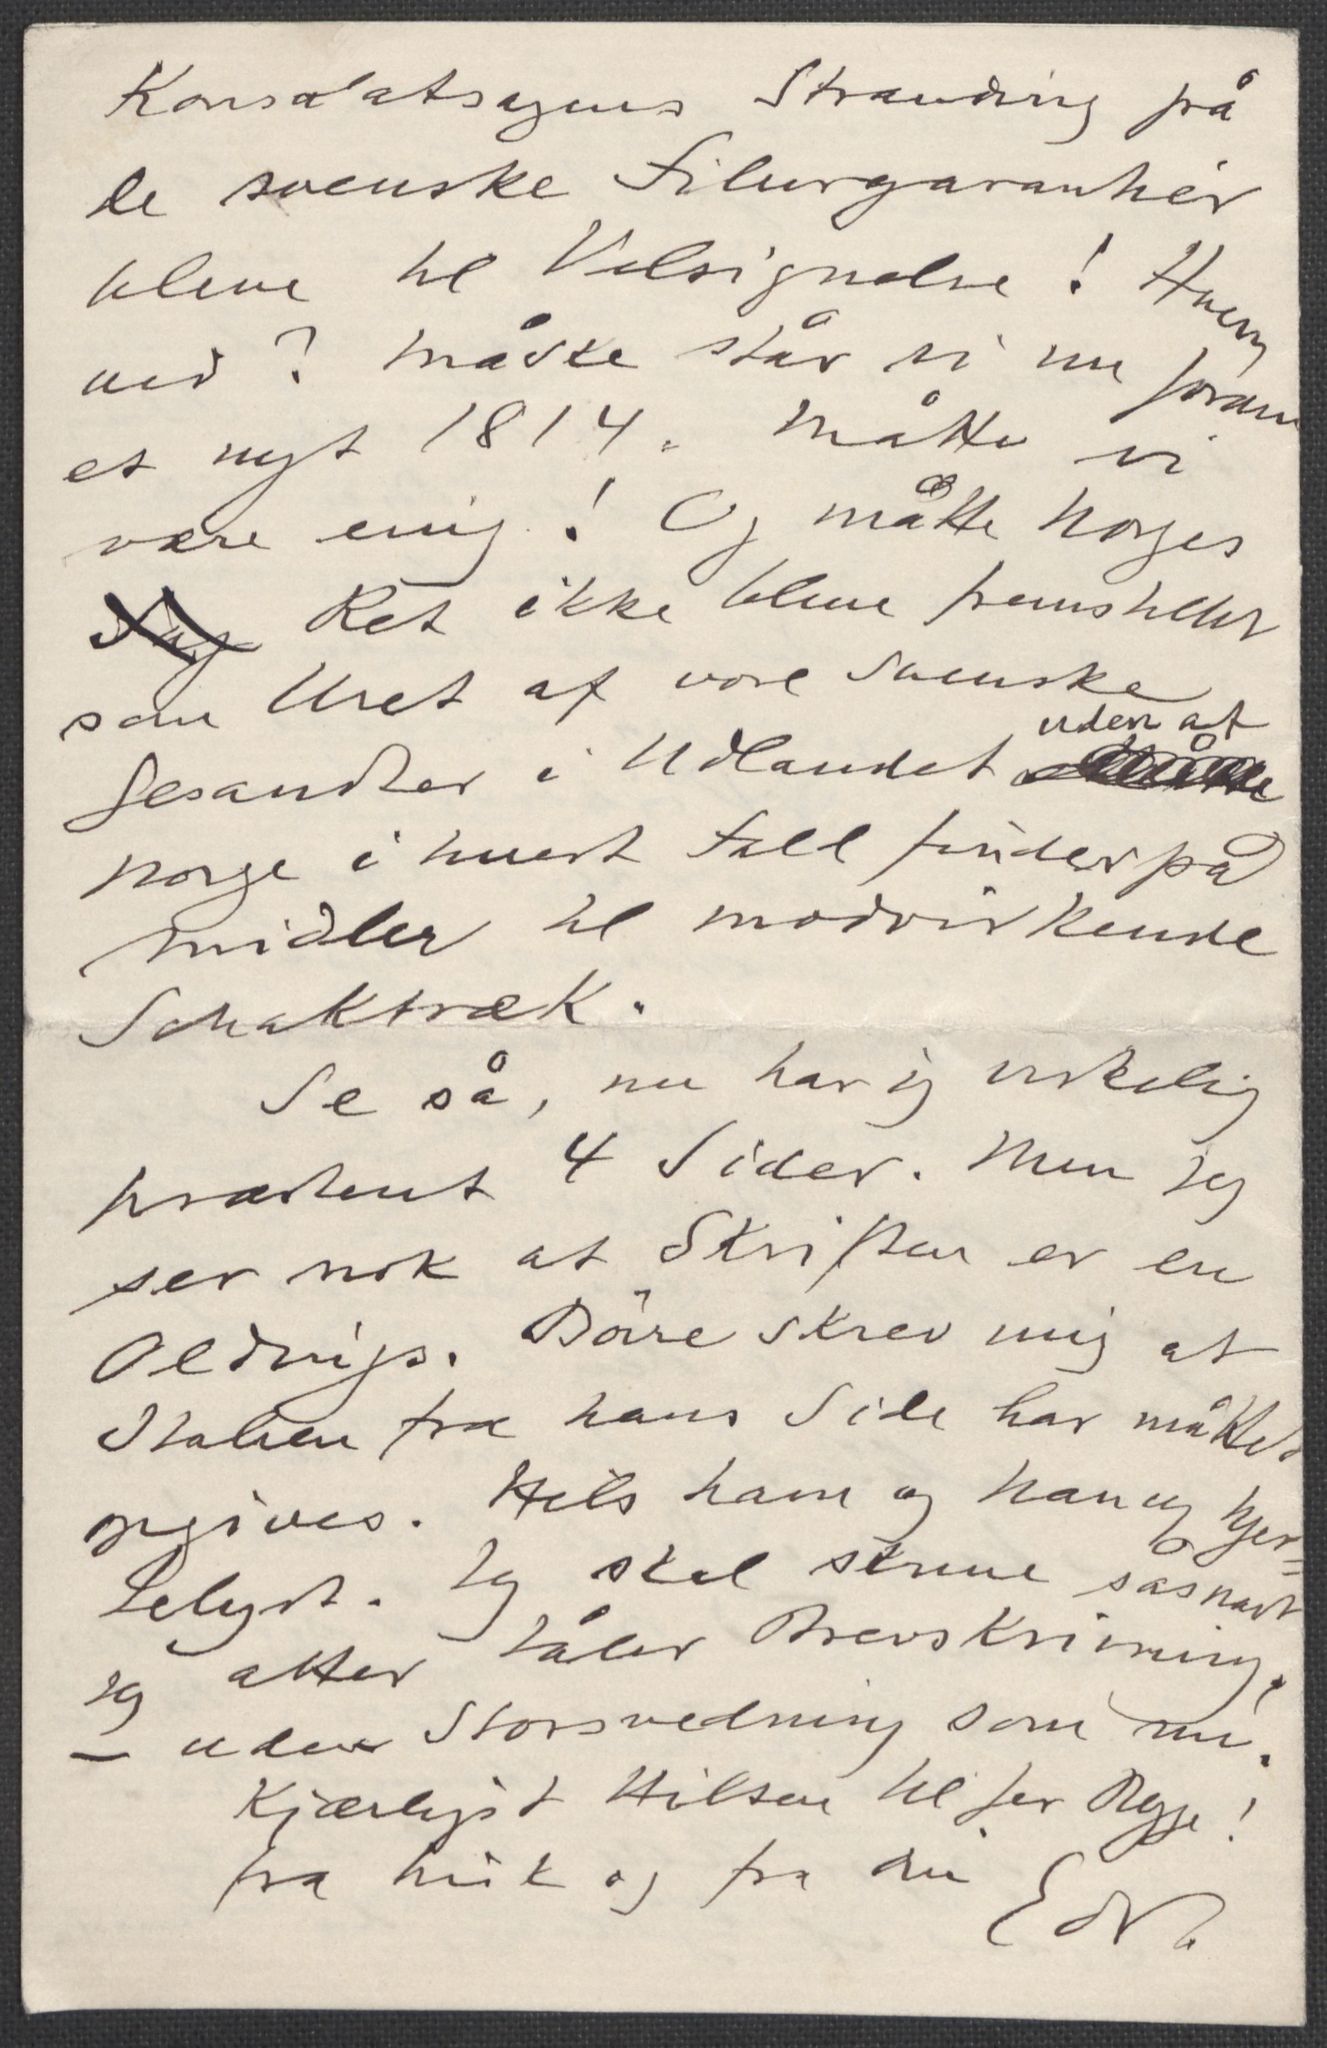 Konsulatsagens Stranding på
de svenske Filurgarantier
blive til Velsignelse! Hvem
ved? Måske står vi nu foran
et nyt 1814. Måtte vi
være enig! Og måtte Norges
Sag Ret ikke blive fremstillet
som Uret af vore svenske
Gesandter i Udlandet uden at
Norge i hvert Fald finder på
Midler til modvirkende
Schaktræk.
Se så, nu har jeg virkelig
præsteret 4 Sider. Men jeg
ser nok at Skriften er en
Oldings. Börre skrev mig at
Italien fra hans Side har måttet
opgives. Hils ham og Nancy hjer=
teligst. Jeg skal skrive såsnart
jeg atter tåler Brevskrivning,
– uden Storsvedning som nu.
Kjærligst Hilsen til jer Begge!
fra Nina og fra din
Edv.